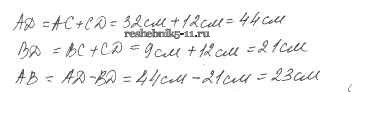 AD = AC + CD = 32см + 12см = 44см
reshebnik5-11.ru
BD = BC + CD = 9см + 12см = 21см
AB = AD - BD = 44см - 21см = 23см